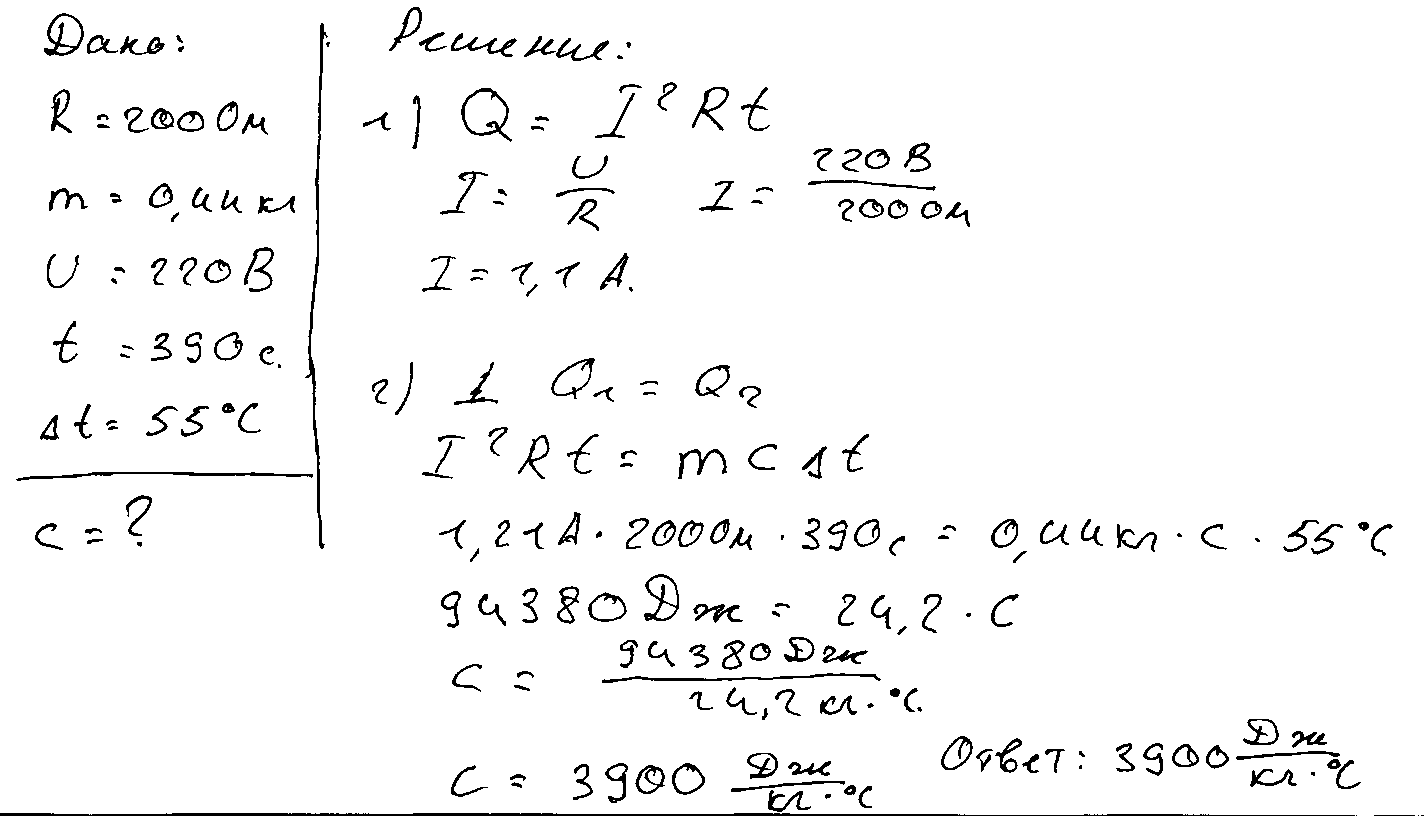 Дано:
R = 200 Ом
m = 0,44 кг
U = 220 В
t = 390 с.
Δt = 55°C
c = ?
Решение:
1) Q = I² R t
I = U/R I = 220 В/200 Ом
I = 1,1 А.
2) Q₁ = Q₂
I² R t = m c Δt
1,21 А · 200 Ом · 390 с = 0,44 кг · c · 55°C
94380 Дж = 24,2 · c
c = 94380 Дж/24,2 кг · °C.
c = 3900 Дж/кг · °C
Ответ: 3900 Дж/кг · °C